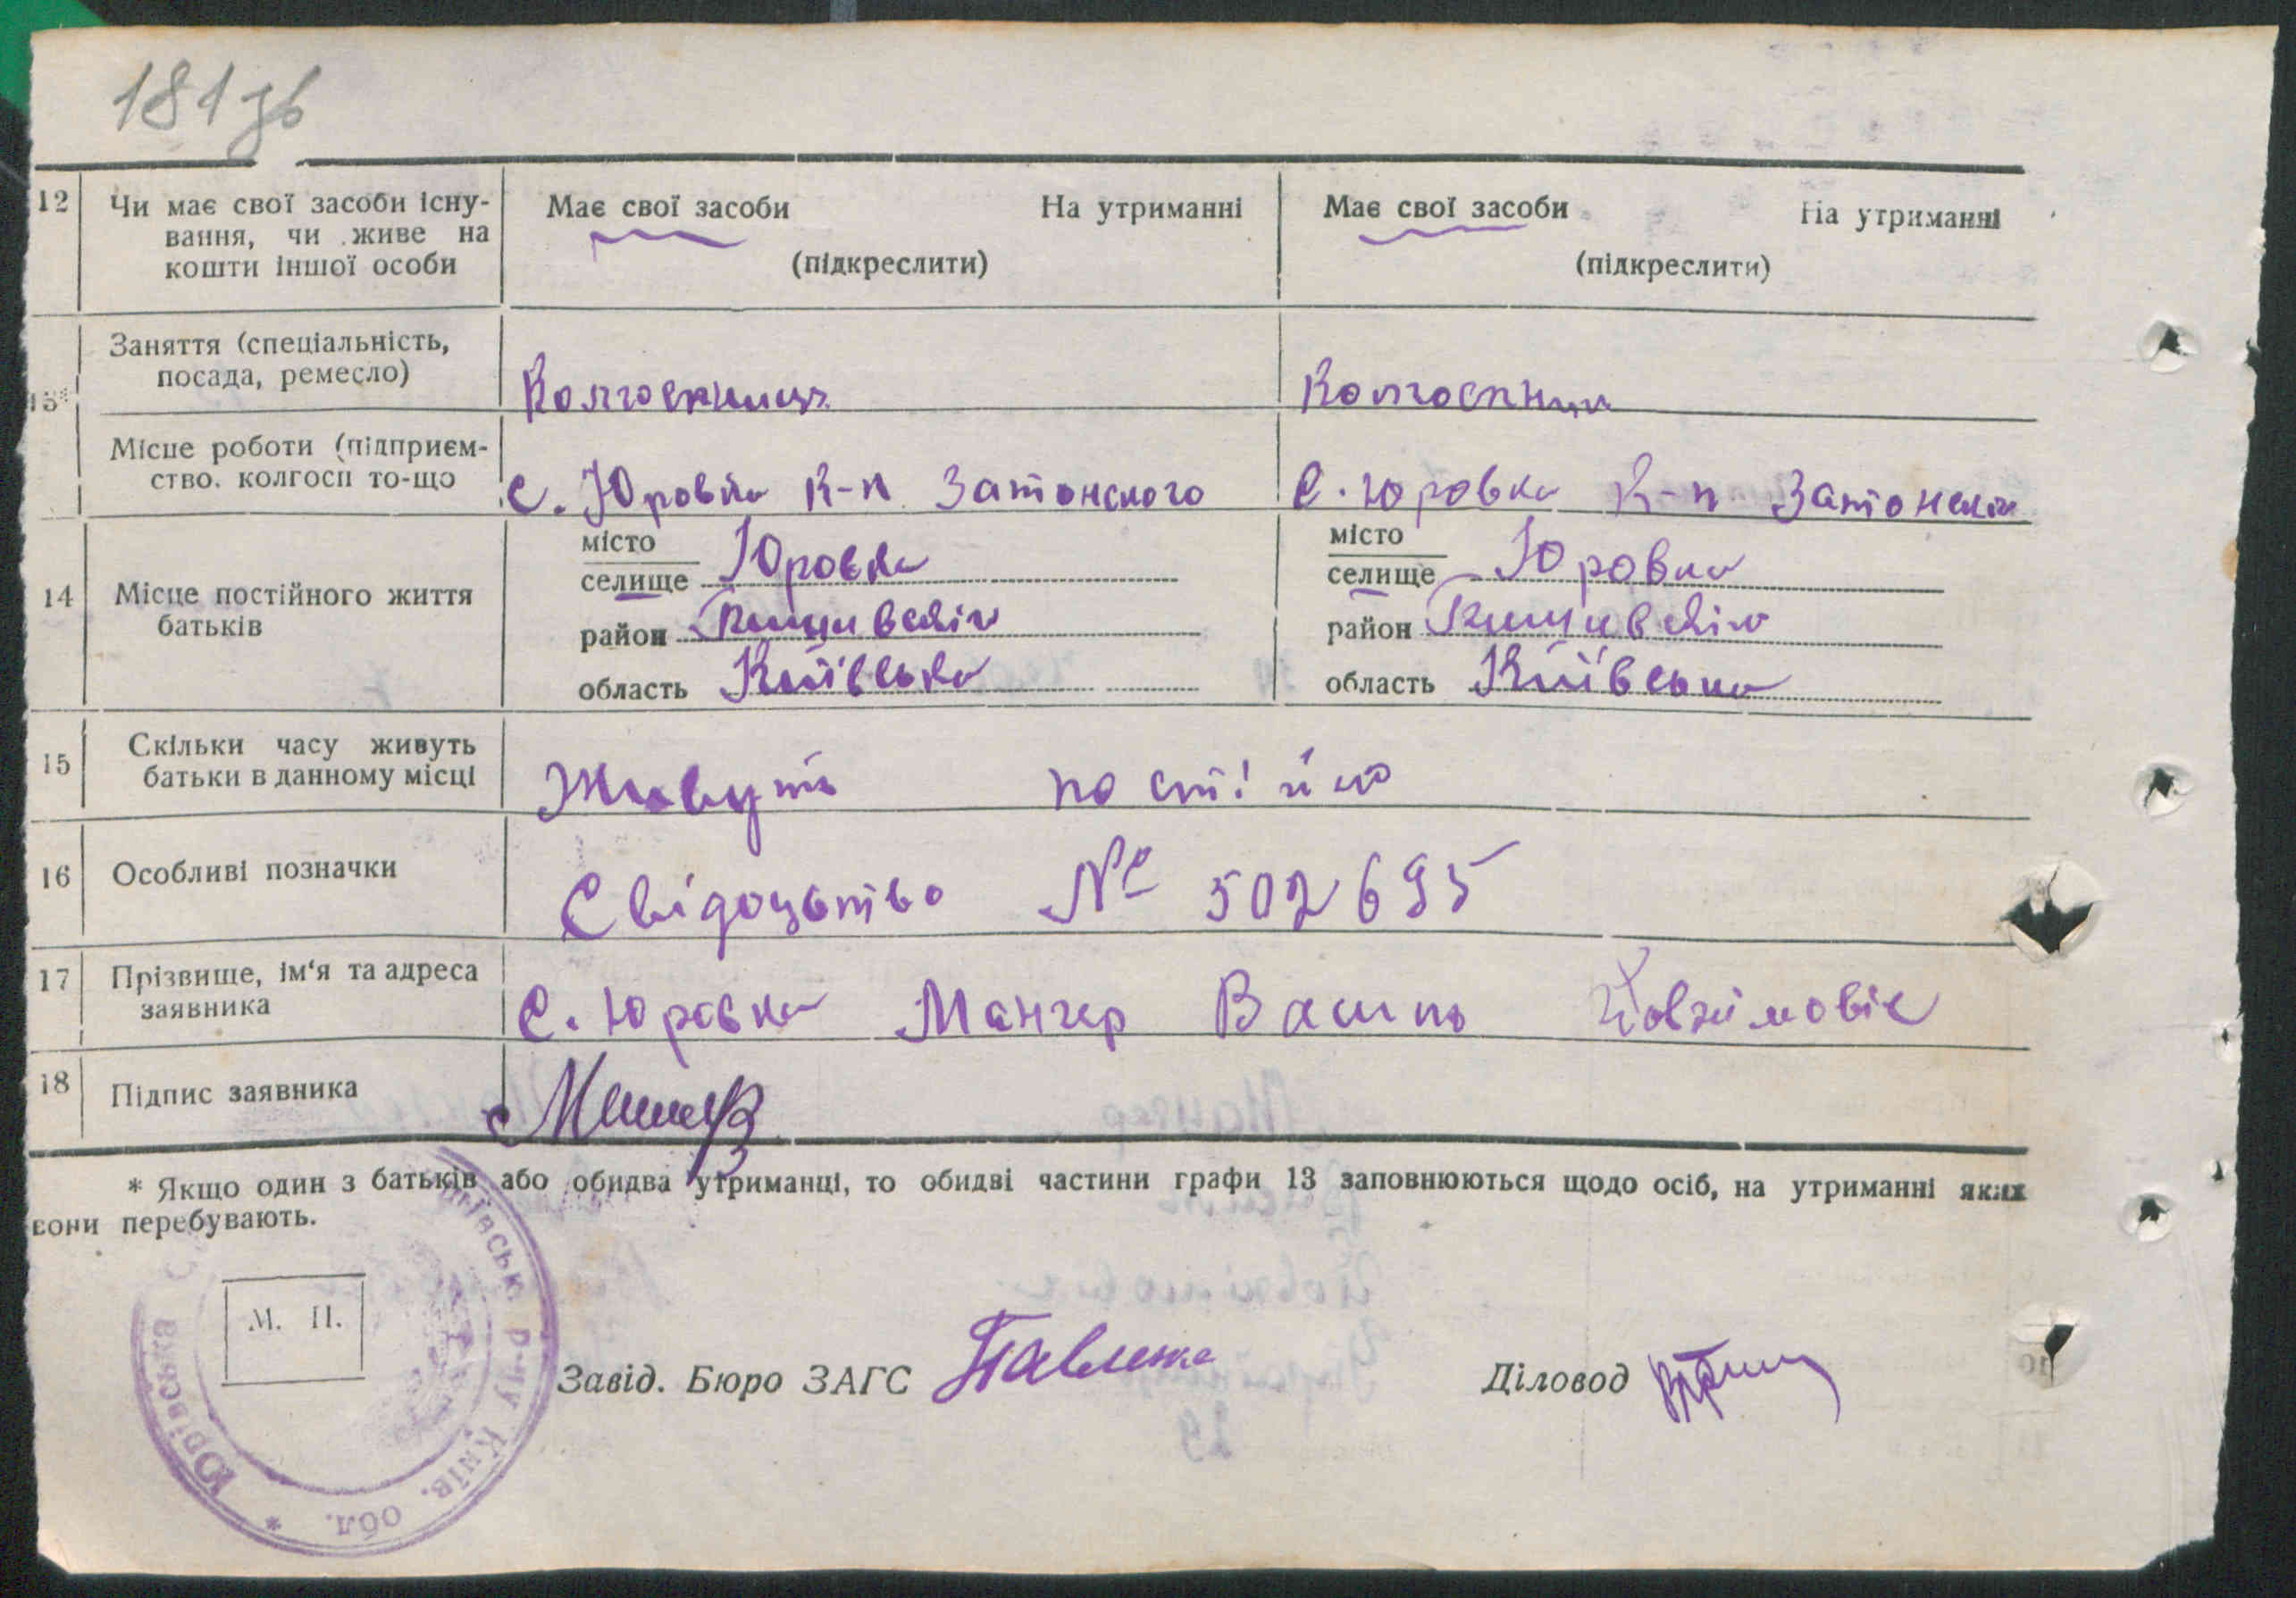 181 зв
12 Чи має свої засоби існу- Має свої засоби На утриманні Має свої засоби На утриманні
вання, чи живе на
кошти іншої особи (підкреслити) (підкреслити)
Заняття (спеціальність,
посада, ремесло) Колгоспниця Колгоспник
13*
Місце роботи (підприєм-
ство. колгосп то-що с. Юровка К-п Затонского с. Юровка К-п Затонского
місто Юровка місто Юровка
селище селище
14 Місце постійного життя
батьків
район район
область Київська область Київська
15 Скільки часу живуть
батьки в данному місці Живуть постійно
16 Особливі позначки Свідоцьтво № 502695
17 Прізвище, ім'я та адреса
заявника с. Юровка Мангер Василь
18 Підпис заявника
* Якщо один з батьків або обидва утриманці, то обидві частини графи 13 заповнюються щодо осіб, на утриманні яких
вони перебувають.
М. П.
Юрівська р-ну Київ. обл. *
Завід. Бюро ЗАГС Павленко Діловод